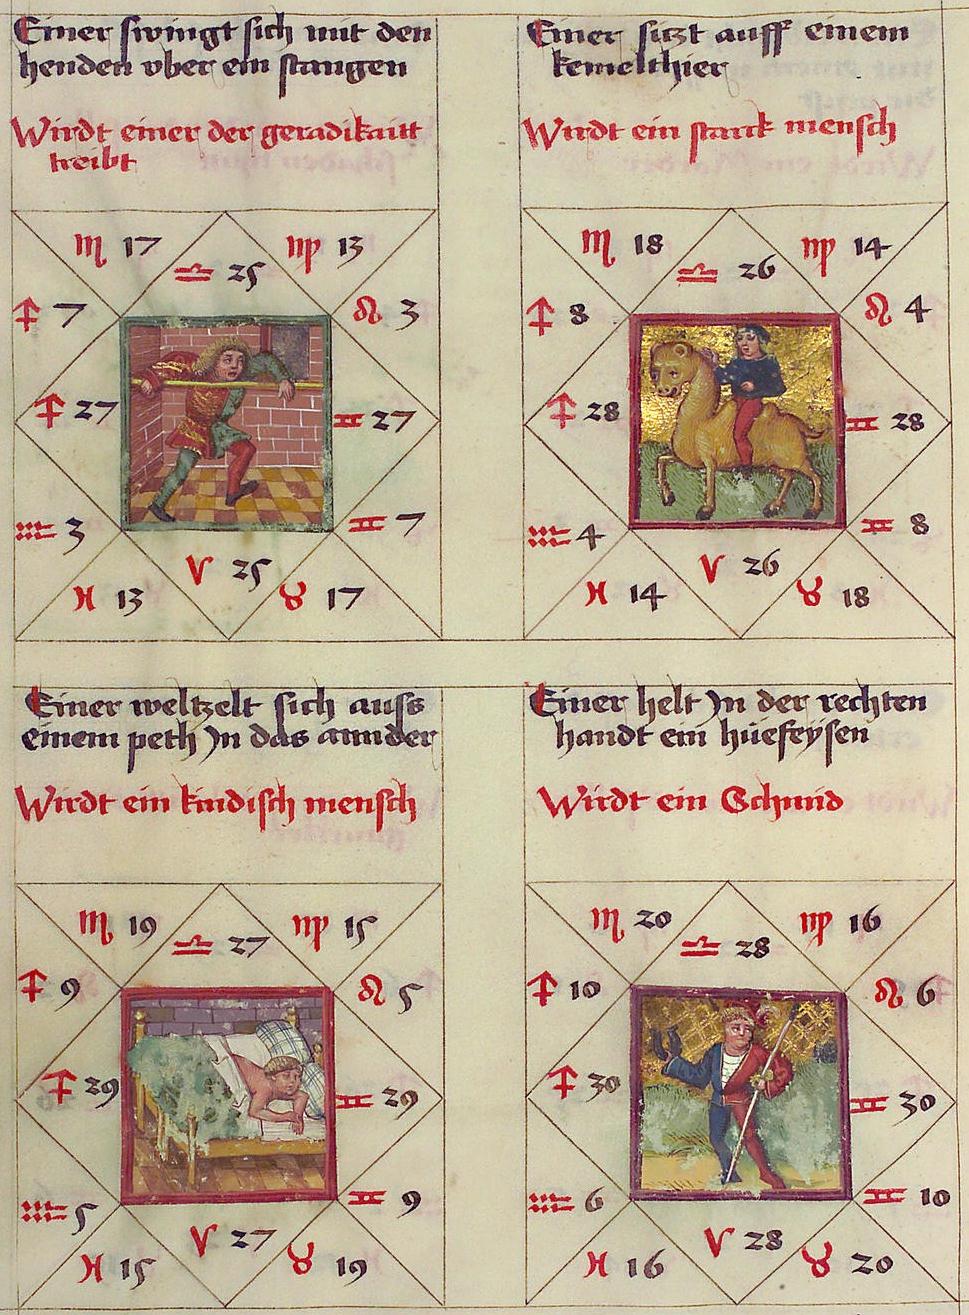 Einer swingt sich mit den
henden vber ein stangen
Wirdt einer der geradikaitt
treibt
♏ 17
♎ 25
♍ 13
♐ 7
♌ 3
♐ 27
♊ 27
♒ 3
♊ 7
♓ 13
♈ 25
♉ 17
Einer sitzt auff einem
kemelthier
Wirdt ein starck mensch
♏ 18
♎ 26
♍ 14
♐ 8
♌ 4
♐ 28
♊ 28
♒ 4
♊ 8
♓ 14
♈ 26
♉ 18
Einer weltzelt sich auss
einem peth Jn das annder
Wirdt ein kindisch mensch
♏ 19
♎ 27
♍ 15
♐ 9
♌ 5
♐ 29
♊ 29
♒ 5
♊ 9
♓ 15
♈ 27
♉ 19
Einer helt Jn der rechten
handt ein hüefeysen
Wirdt ein Schmid
♏ 20
♎ 28
♍ 16
♐ 10
♌ 6
♐ 30
♊ 30
♒ 6
♊ 10
♓ 16
♈ 28
♉ 20